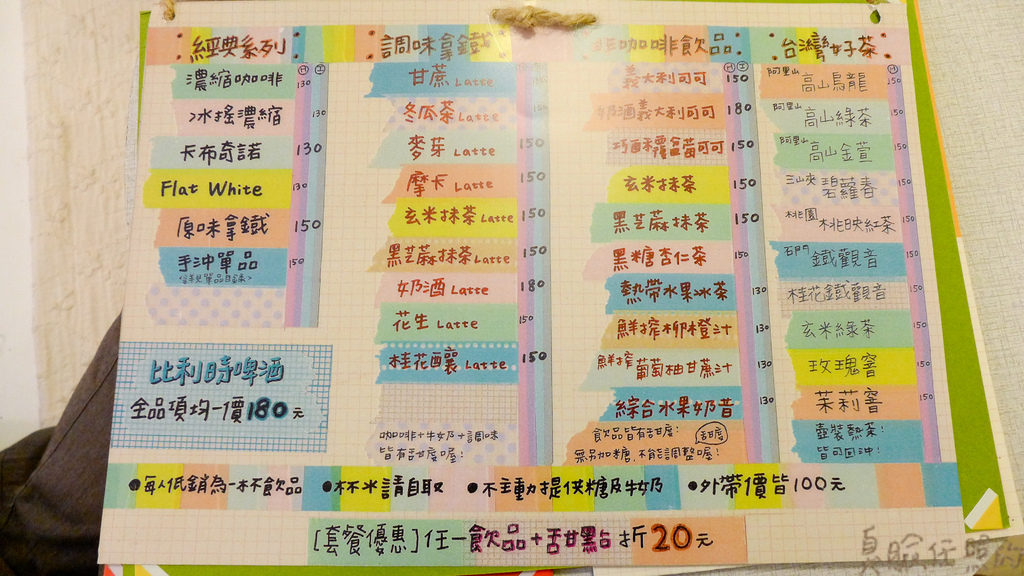 經典系列
Ⓗ Ⓘ
濃縮咖啡 130
冰搖濃縮 130
卡布奇諾 130
Flat White 130
原味拿鐵 150
手沖單品 150
比利時啤酒
全品項均一價180元
調味拿鐵
甘蔗 Latte 150
冬瓜茶 Latte 150
麥芽 Latte 150
摩卡 Latte 150
玄米抹茶 Latte 150
黑芝麻抹茶 Latte 150
奶酒 Latte 180
花生 Latte 150
桂花釀 Latte 150
咖啡+牛奶+調味
皆有甜度喔!
非咖啡飲品
Ⓗ Ⓘ
義大利可可 150
奶酒義大利可可 180
巧酥米覆盆莓可可 150
玄米抹茶 150
黑芝麻抹茶 150
黑糖杏仁茶 150
熱帶水果冰茶 130
鮮搾柳橙汁 130
鮮搾葡萄柚甘蔗汁 130
綜合水果奶昔 130
飲品皆有甜度! 甜度
無另加糖,不能調整喔!
台灣好茶
Ⓗ Ⓘ
阿里山 高山烏龍 150
阿里山 高山綠茶 150
阿里山 高山金萱 150
三峽 碧蘿春 150
桃園 桃映紅茶 150
石門 鐵觀音 150
桂花鐵觀音 150
玄米綠茶 150
玫瑰窨 150
茉莉窨 150
壺裝熱茶!
皆可回沖!
●每人低銷為一杯飲品 ●杯水請自取 ●不主動提供糖及牛奶 ●外帶價皆100元
[套餐優惠]任一飲品+甜點折20元